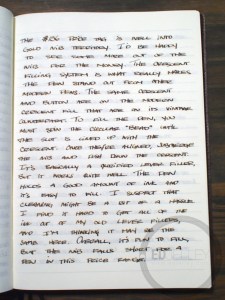 THE $136 PRICE TAG IS WELL INTO
GOLD NIB TERRITORY. I'D BE HAPPY
TO SEE SOME MADE OUT OF THE
NIB FOR THE MONEY. THE CRESCENT
FILLING SYSTEM IS WHAT REALLY MAKES
THE PEN STAND OUT FROM OTHER
MODERN PENS. THE SAME CRESCENT
AND BUTTON ARE ON THE MODERN
CRESCENT FILL THAT ARE ON ITS VINTAGE
COUNTERPART. TO FILL THE PEN, YOU
MUST SPIN THE CIRCULAR "BEAD" UNTIL
THE SLOT IS LINED UP WITH THE
CRESCENT. ONCE THEY'RE ALIGNED, SUBMERGE
THE NIB AND PUSH DOWN THE CRESCENT.
IT'S BASICALLY A GLORIFIED LEVER FILLER,
BUT IT WORKS QUITE WELL. THE PEN
HOLDS A GOOD AMOUNT OF INK AND
IT'S EASY TO FILL. I SUSPECT THAT
CLEANING MIGHT BE A BIT OF A HASSLE.
I FIND IT HARD TO GET ALL OF THE
INK OUT OF MY OLD LEVER FILLERS,
AND I'M THINKING IT MAY BE THE
SAME HERE. OVERALL, IT'S FUN TO FILL,
BUT THE NIB FALLS SHORT FOR A
PEN IN THIS PRICE RANGE.